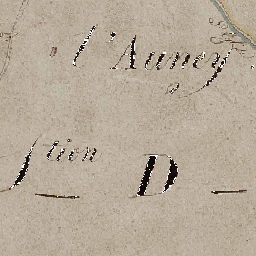 l'Auney
stien D